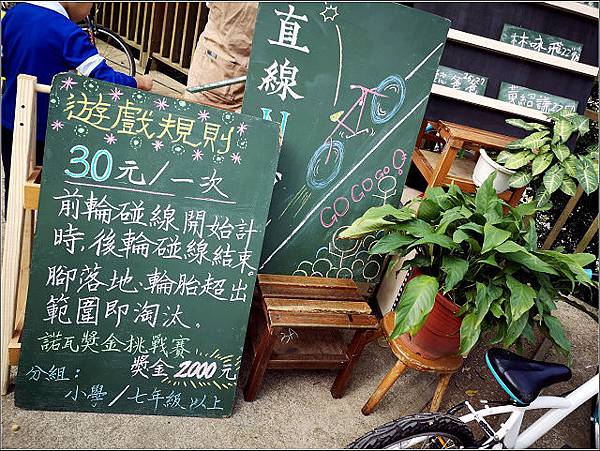 遊戲規則
30元/一次
前輪碰線開始計
時,後輪碰線結束。
腳落地、輪胎超出
範圍即淘汰。
諾瓦獎金挑戰賽
獎金2000元
分組:
小學/七年級以上
直線
GO GO GO
林咏飛
黃紹謙